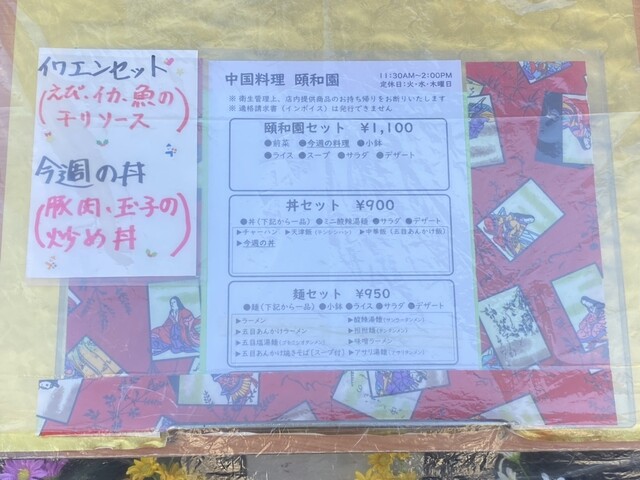 イワエンセット
(えび、イカ、魚の
チリソース)
今週の丼
(豚肉、玉子の
炒め丼)
中国料理 頤和園
11:30AM~2:00PM
定休日:火・水・木曜日
※ 衛生管理上、店内提供商品のお持ち帰りをお断りいたします
※ 適格請求書(インボイス)は発行できません
頤和園セット ¥1,100
●前菜 ●今週の料理 ●小鉢
●ライス ●スープ ●サラダ ●デザート
丼セット ¥900
●丼(下記から一品) ●ミニ酸辣湯麺 ●サラダ ●デザート
▶チャーハン ▶天津飯(テンシンハン) ▶中華飯(五目あんかけ飯)
▶今週の丼
麺セット ¥950
●麺(下記から一品) ●小鉢 ●ライス ●サラダ ●デザート
▶ラーメン ▶酸辣湯麺(サンラータンメン)
▶五目あんかけラーメン ▶担担麺(タンタンメン)
▶五目塩湯麺 ▶味噌ラーメン
▶五目あんかけ焼きそば[スープ付] ▶アサリ湯麺